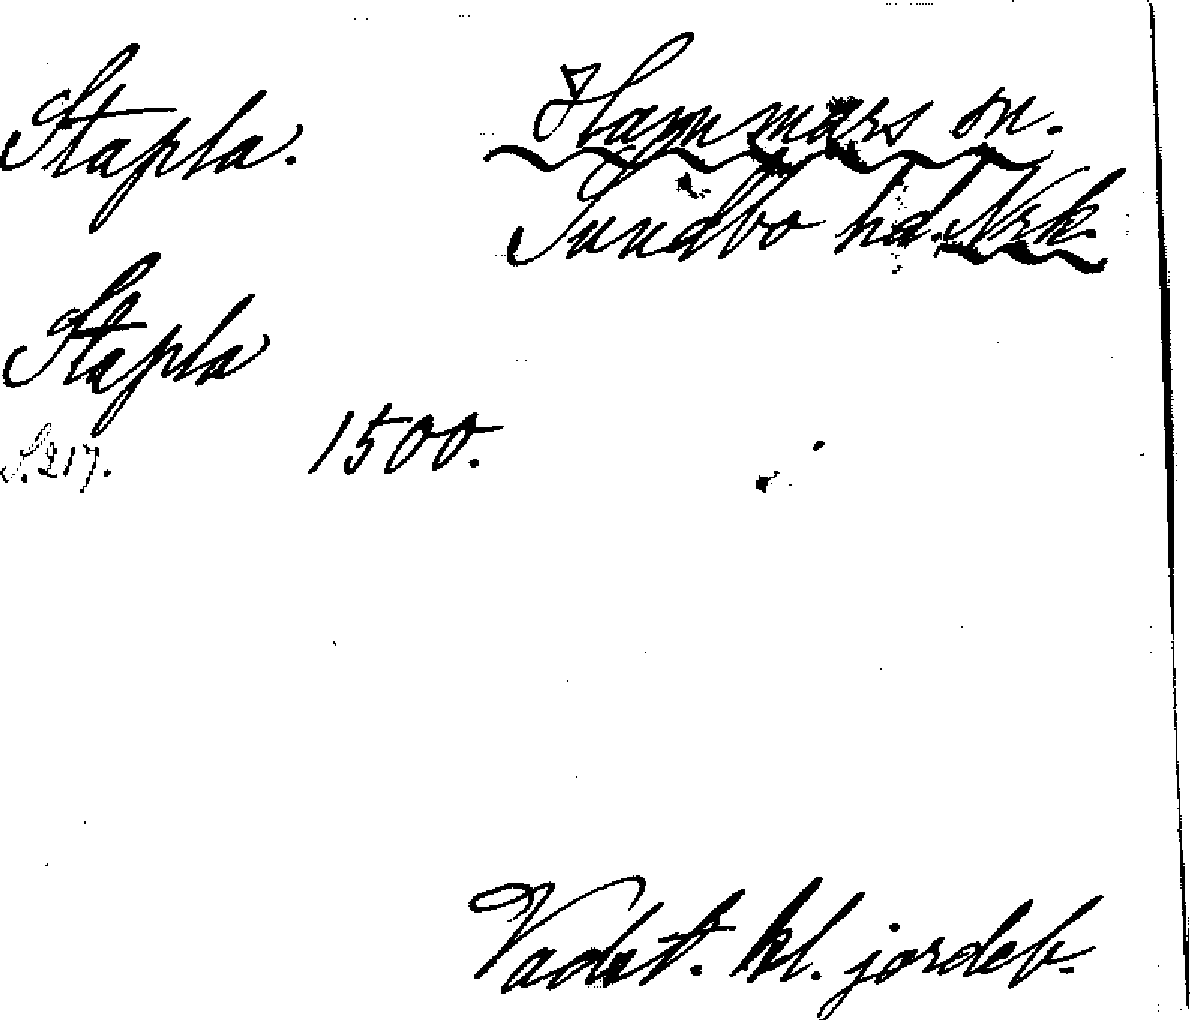 Stapla.
Hammars sn.
Sundbo hd. Nrk.
Stapla
S. 217.
1500.
Vadst. kl. jordeb.